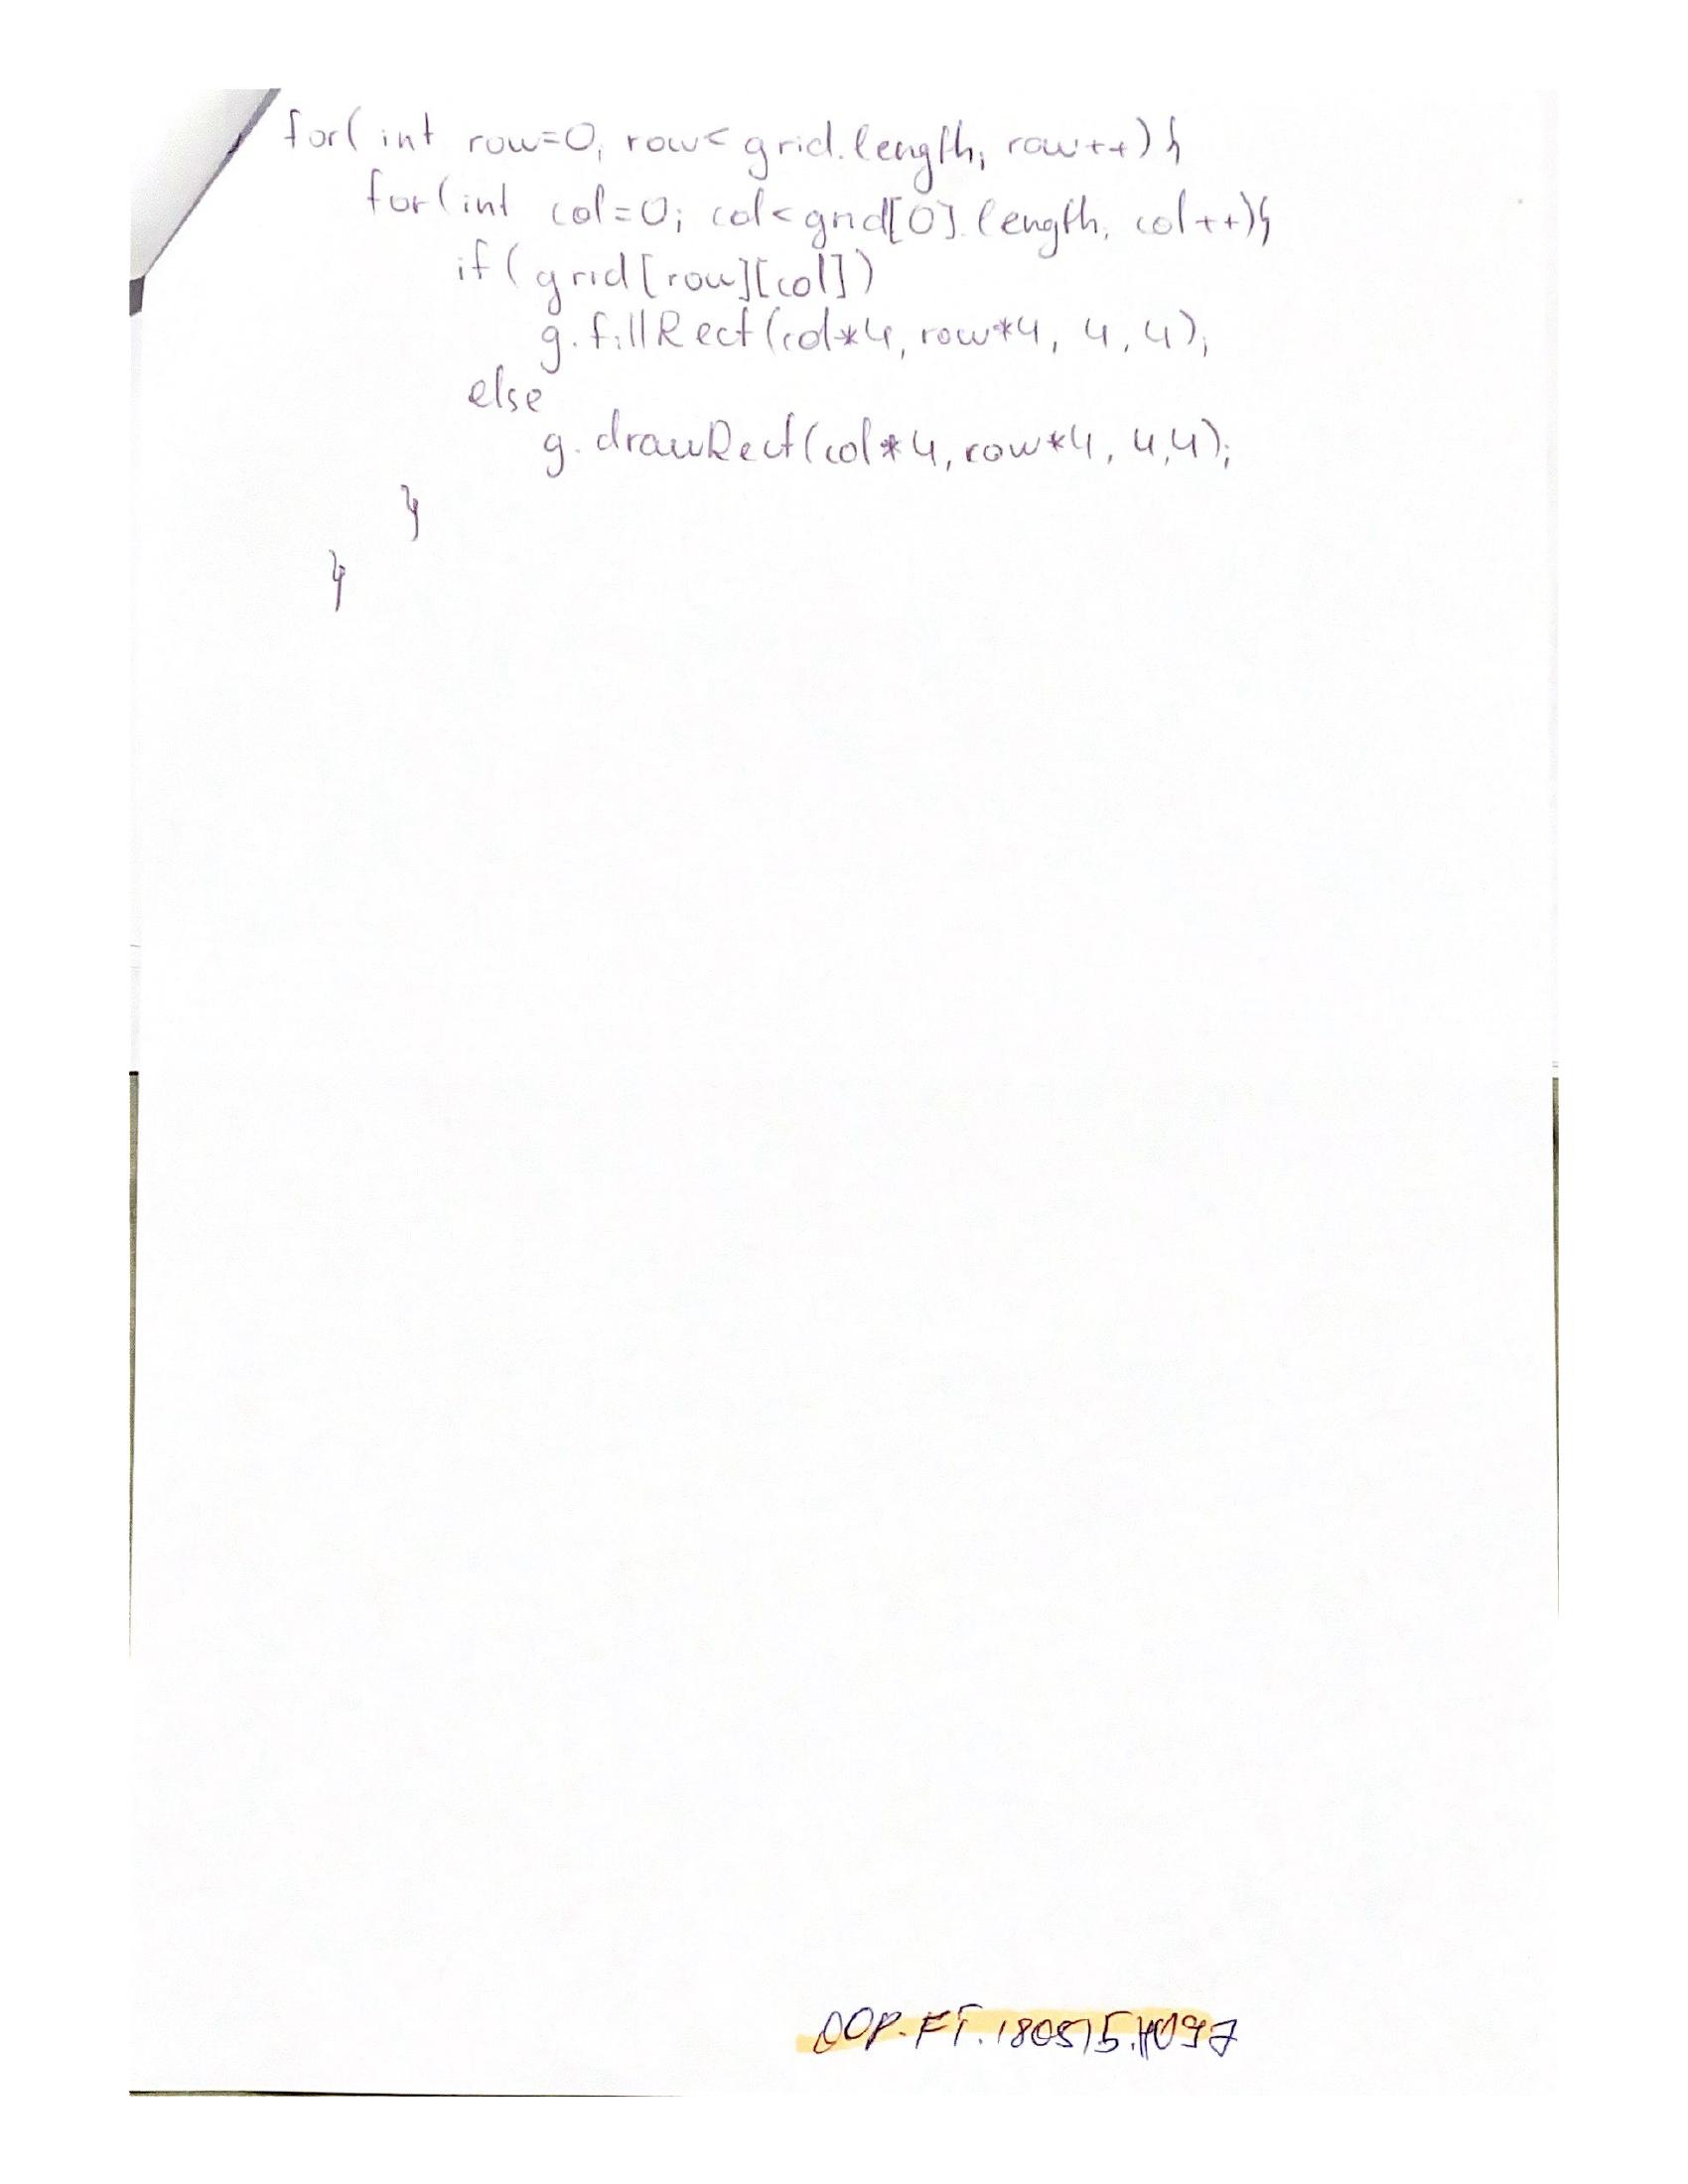 for( int row=0; row< grid.length; row++) {
for(int col=0; col<grid[0].length; col++){
if( grid[row][col])
g.fillRect(col*4, row*4, 4, 4);
else
g.drawRect(col*4, row*4, 4,4);
}
}
OOP.FT.180515.H097